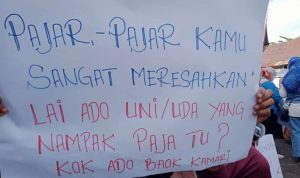 PAJAR-PAJAR KAMU
SANGAT MERESAHKAN
LAI ADO UNI/UDA YANG
NAMPAK PAJA TU?
KOK ADO BAOK KAMARI